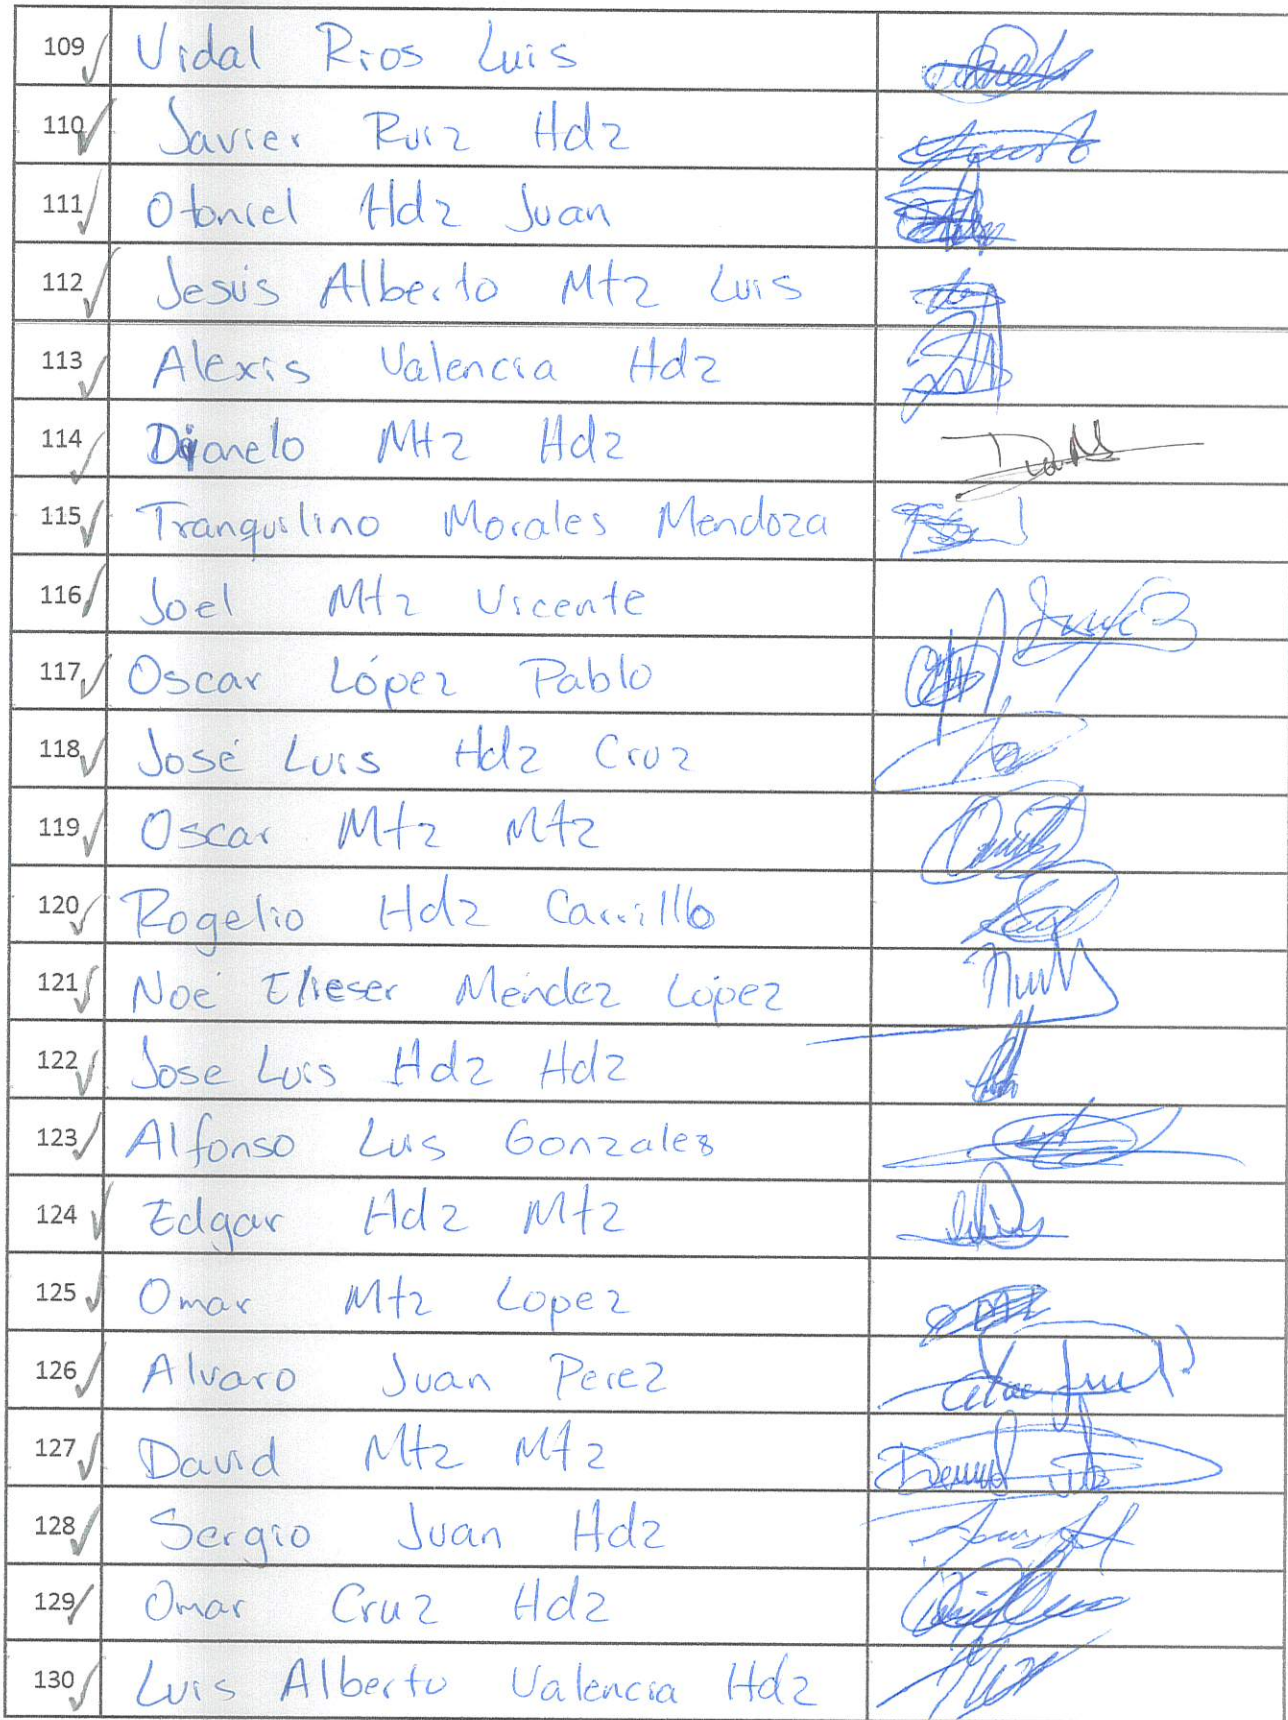 109 Vidal Rios Luis
110 Javier Ruiz Hdz
111 Otoniel Hdz Juan
112 Jesús Alberto Mtz Luis
113 Alexis Valencia Hdz
114 Dianelo Mtz Hdz
115 Tranquilino Morales Mendoza
116 Joel Mtz Vicente
117 Oscar López Pablo
118 José Luis Hdz Cruz
119 Oscar Mtz Mtz
120 Rogelio Hdz Carrillo
121 Noé Elieser Méndez López
122 Jose Luis Hdz Hdz
123 Alfonso Luis Gonzalez
124 Edgar Hdz Mtz
125 Omar Mtz Lopez
126 Alvaro Juan Perez
127 David Mtz Mtz
128 Sergio Juan Hdz
129 Omar Cruz Hdz
130 Luis Alberto Valencia Hdz